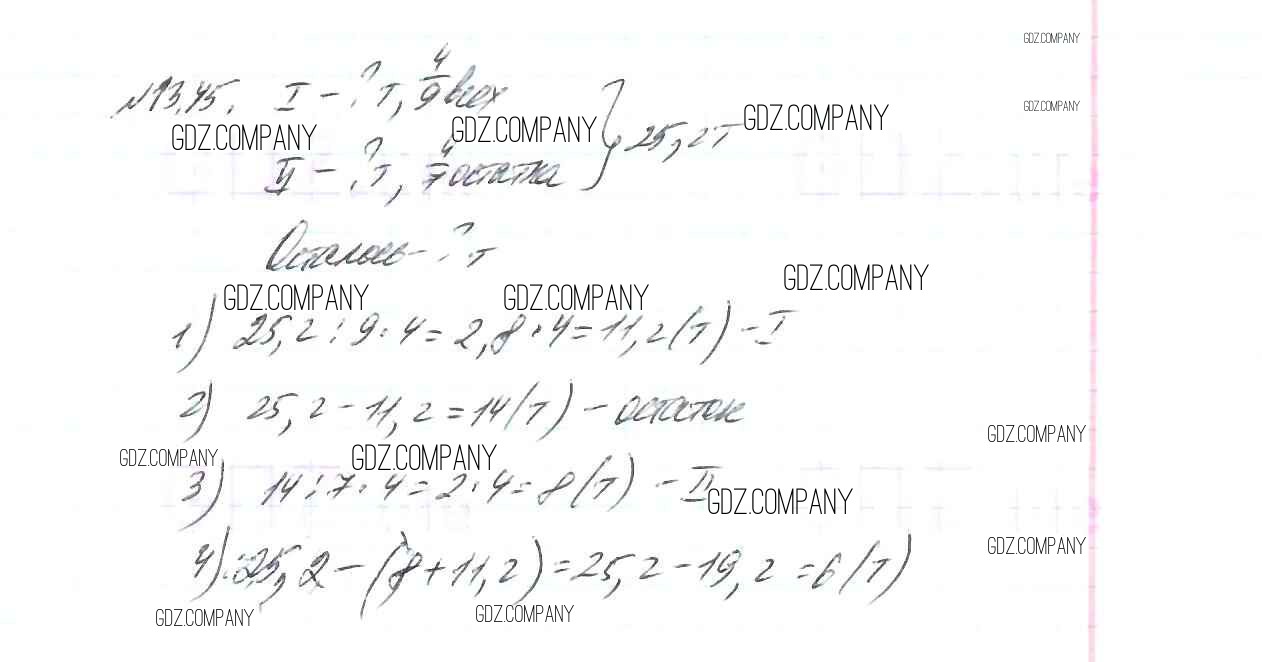 GDZ.COMPANY
№13.45. I - ? т, 4/9 всех
GDZ.COMPANY
GDZ.COMPANY GDZ.COMPANY GDZ.COMPANY
} 25,2 т
II - ? т, 4/7 остатка
Осталось - ? т
GDZ.COMPANY
GDZ.COMPANY GDZ.COMPANY
1) 25,2 : 9 · 4 = 2,8 · 4 = 11,2 (т) - I
2) 25,2 - 11,2 = 14 (т) - остаток
GDZ.COMPANY
GDZ.COMPANY GDZ.COMPANY
3) 14 : 7 · 4 = 2 · 4 = 8 (т) - II
GDZ.COMPANY
GDZ.COMPANY
4) 25,2 - (8 + 11,2) = 25,2 - 19,2 = 6 (т)
GDZ.COMPANY GDZ.COMPANY